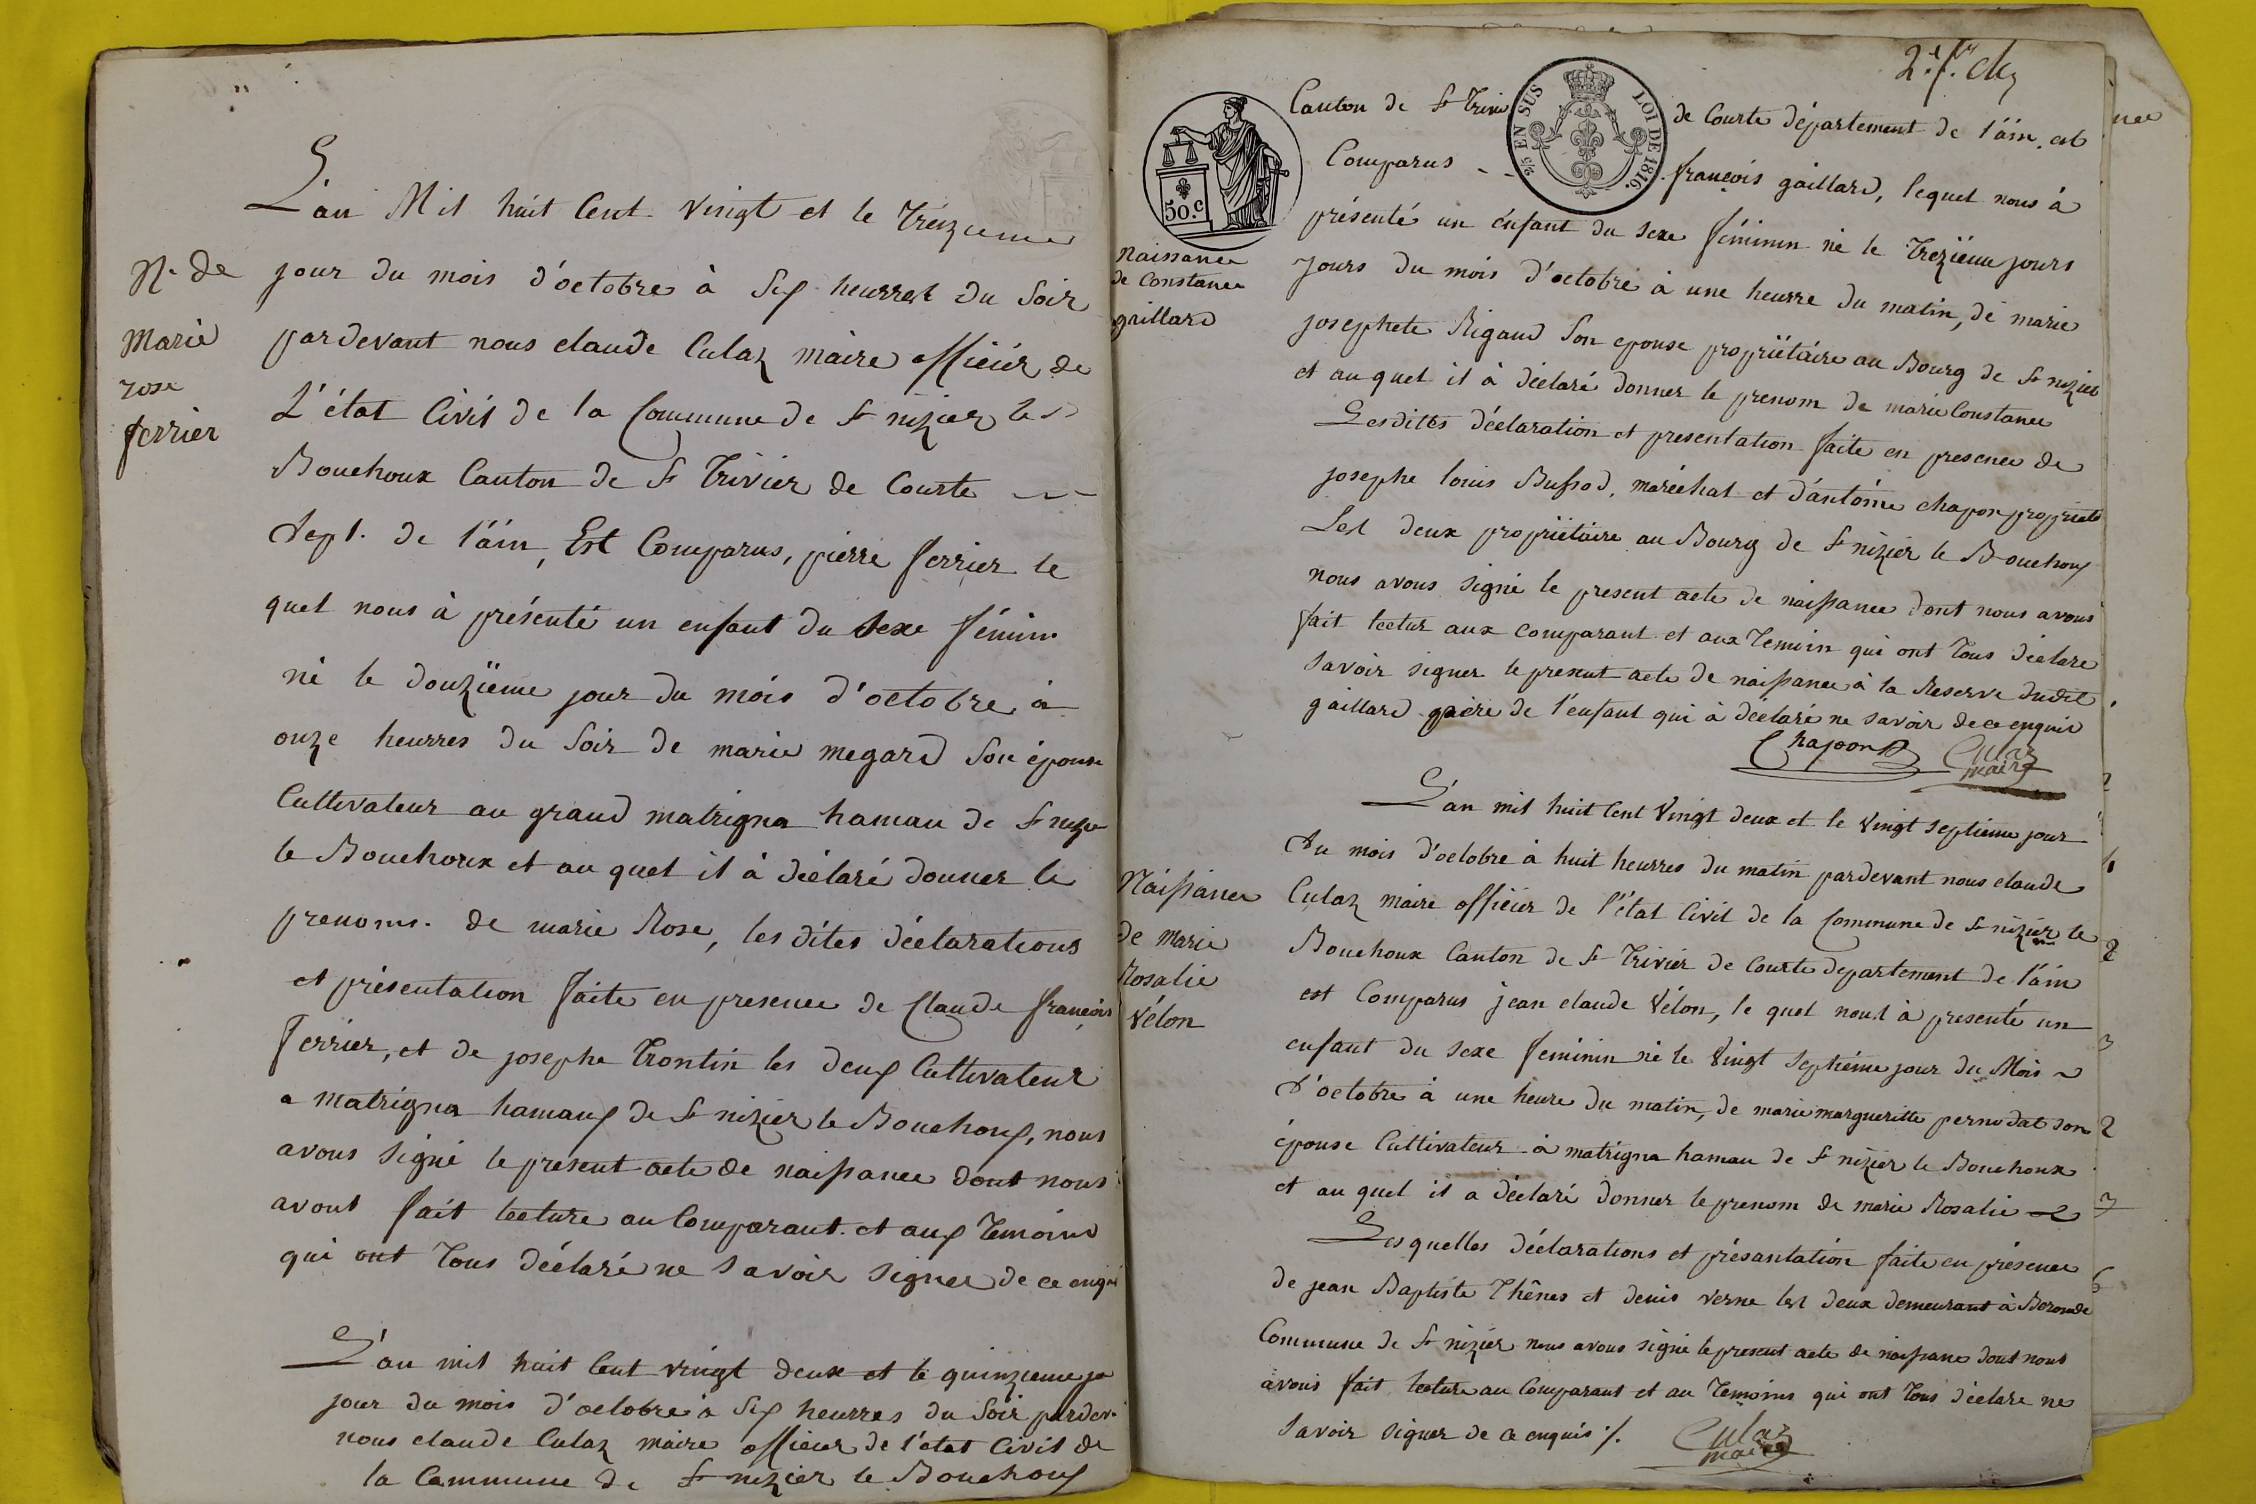 L'an Mil huit Cent vingt et le Treizieme
N. de
Marie
rose
ferrier
jour du mois d'octobre à Six heurres du Soir
pardevant nous claude Culaz maire officiér de
L'état Civil de la Commune de St nizier le
Bouchoux Canton de St Trivier de Courte
Dept. de l'ain, Est Comparus, pierre ferrier le
quel nous à présenté un enfant du Sexe féminin
né le douzïeme jour du mois d'octobre à
onze heurres du Soir de marie megard Son épouse
Cultivateur au grand matrigna hamau de St nizier
le Bouchoux et au quel il à déclaré donner le
prenoms. de marie Rose, les dites déclarations
et présentation faite en presence de Claude françois
ferrier, et de josephe Trontin les deux Cultivateur
a matrigna hamaux de St nizier le Bouchoux, nous
avons Signé le present acte de naissance dont nous
avons fait lecture au Comparant. et aux Temoins
qui ont Tous déclaré ne Savoir Signer de ce enquis
L'an mil huit Cent vingt deux et le quinzieme
jour du mois d'octobre à Six heurres du Soir pardev.
nous claude Culaz maire officier de l'etat Civil de
la Commune de St nizier le Bouchoux
50.c
2/5 EN SUS
LOI DE 1816.
Canton de St Trivi de Courte département de l'ain. est
Comparus françois gaillard, lequel nous à
présenté un énfant du Sexe féminin né le Trezïéme jours
Naissance
de Constance
gaillard
jours du mois d'octobre à une heurre du matin, dé marie
josephete Rigaud Son epouse propriétaire au Bourg de St nizier
et au quel il à déclaré donner le prenom de marie Constance
Lesdites déclaration et presentation faite en presence de
josephe louis Bussod, maréchal et d'antoine chapon propriét
Les deux propriétaire au Bourg de St nizier le Bouchoux
nous avons Signé le present acte de naissance dont nous avons
fait lectur aux comparant et aux Temoin qui ont Tous déclare
Savoir signer le present acte de naissance à la Reserve dudit
gaillard père de l'enfant qui à déclaré ne Savoir de ce enquis
Chapon Culaz
maire
L'an mil huit Cent Vingt deux et le Vingt Septieme jour
Du mois d'octobre à huit heurres du matin pardevant nous claude
Naissance
de marie
Rosalie
Vélon
Culaz maire officiér de l'état Civil de la Commune de St nizier le
Bouchoux Canton de St Trivier de Courte departement de l'ain
est Comparus jean claude Vélon, le quel nous à presenté un
enfant du Sexe feminin né le Vingt Septiéme jour du Mois
d'octobre à une heure du matin, de marie margueritte pernodat Son
épouse Cultivateur à matrigna hamau de St nizier le Bouchoux
et au quel il a déclaré donner le prenom de marie Rosalie
Les quelles déclarations et présantation faite en présence
de jean Baptiste Thênes et denis verne les deux demeurant à Beronde
Commune de St nizier nous avons signé le present acte de naissance dont nous
avons fait lecture au Comparant et au Temoins qui ont Tous déclare ne
Savoir Signer de ce enquis ./.
Culaz
maire